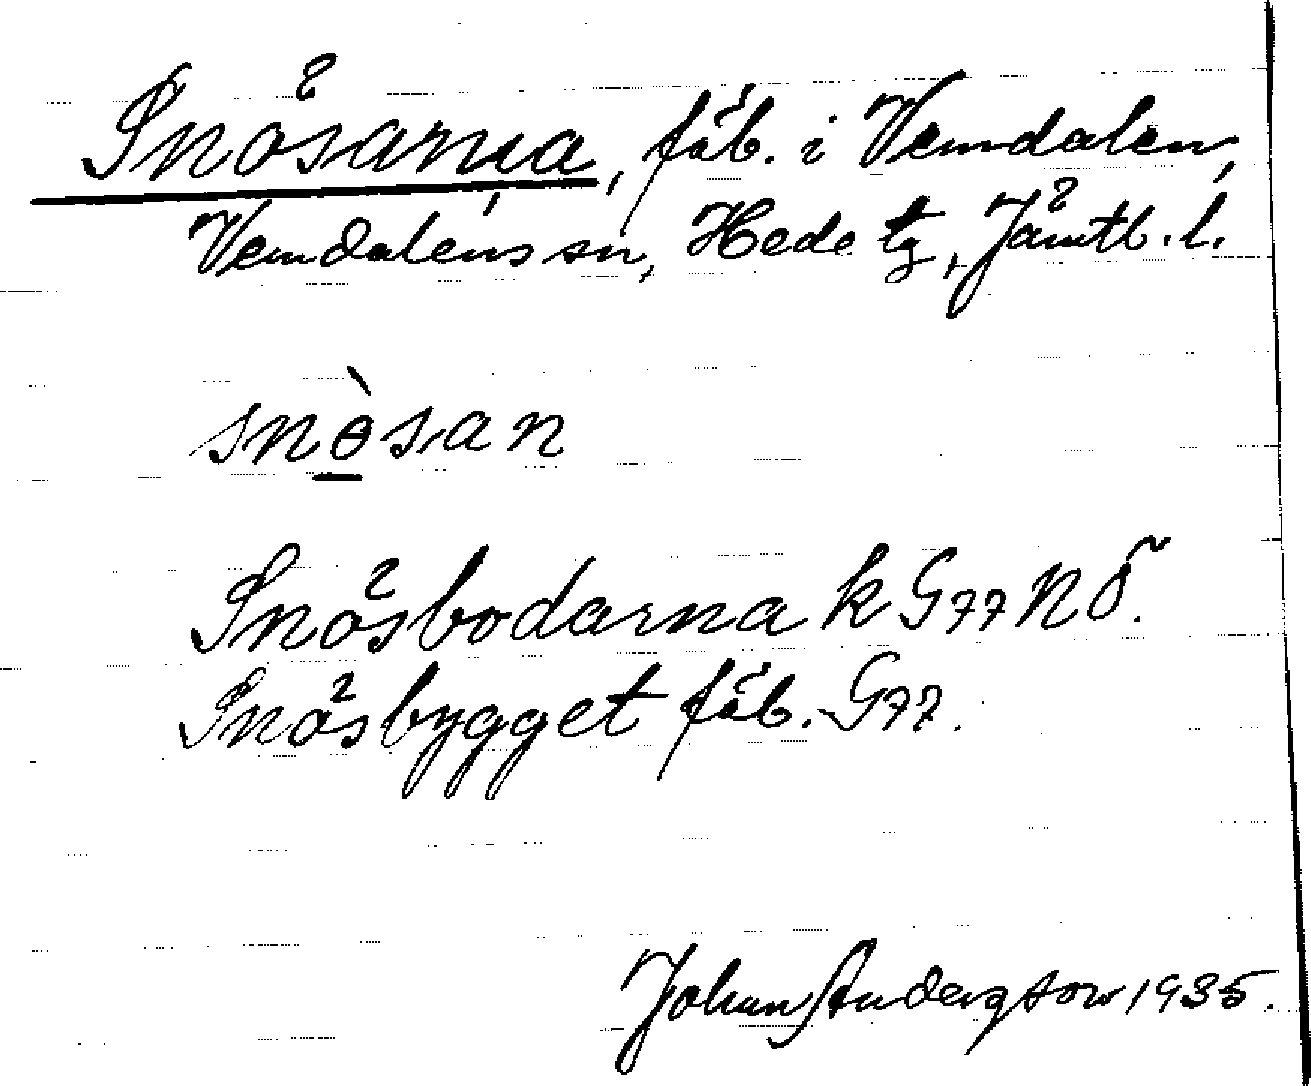 Snösarna, fäb. i Vemdalen,
Vemdalens sn, Hede tg, Jämtl. l.
snɵ̀san
Snösbodarna k G77 NÖ.
Snösbygget fäb. G77.
Johan Anderszon 1935.